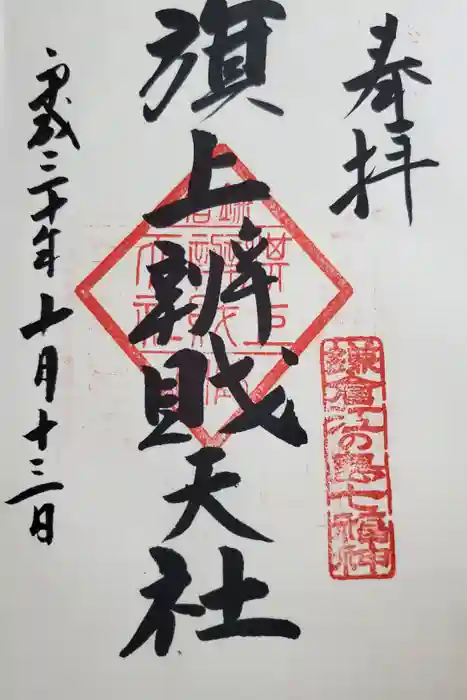 奉拝
鎌倉江の島七福神
旗上辨財天社
平成三十年十月十三日